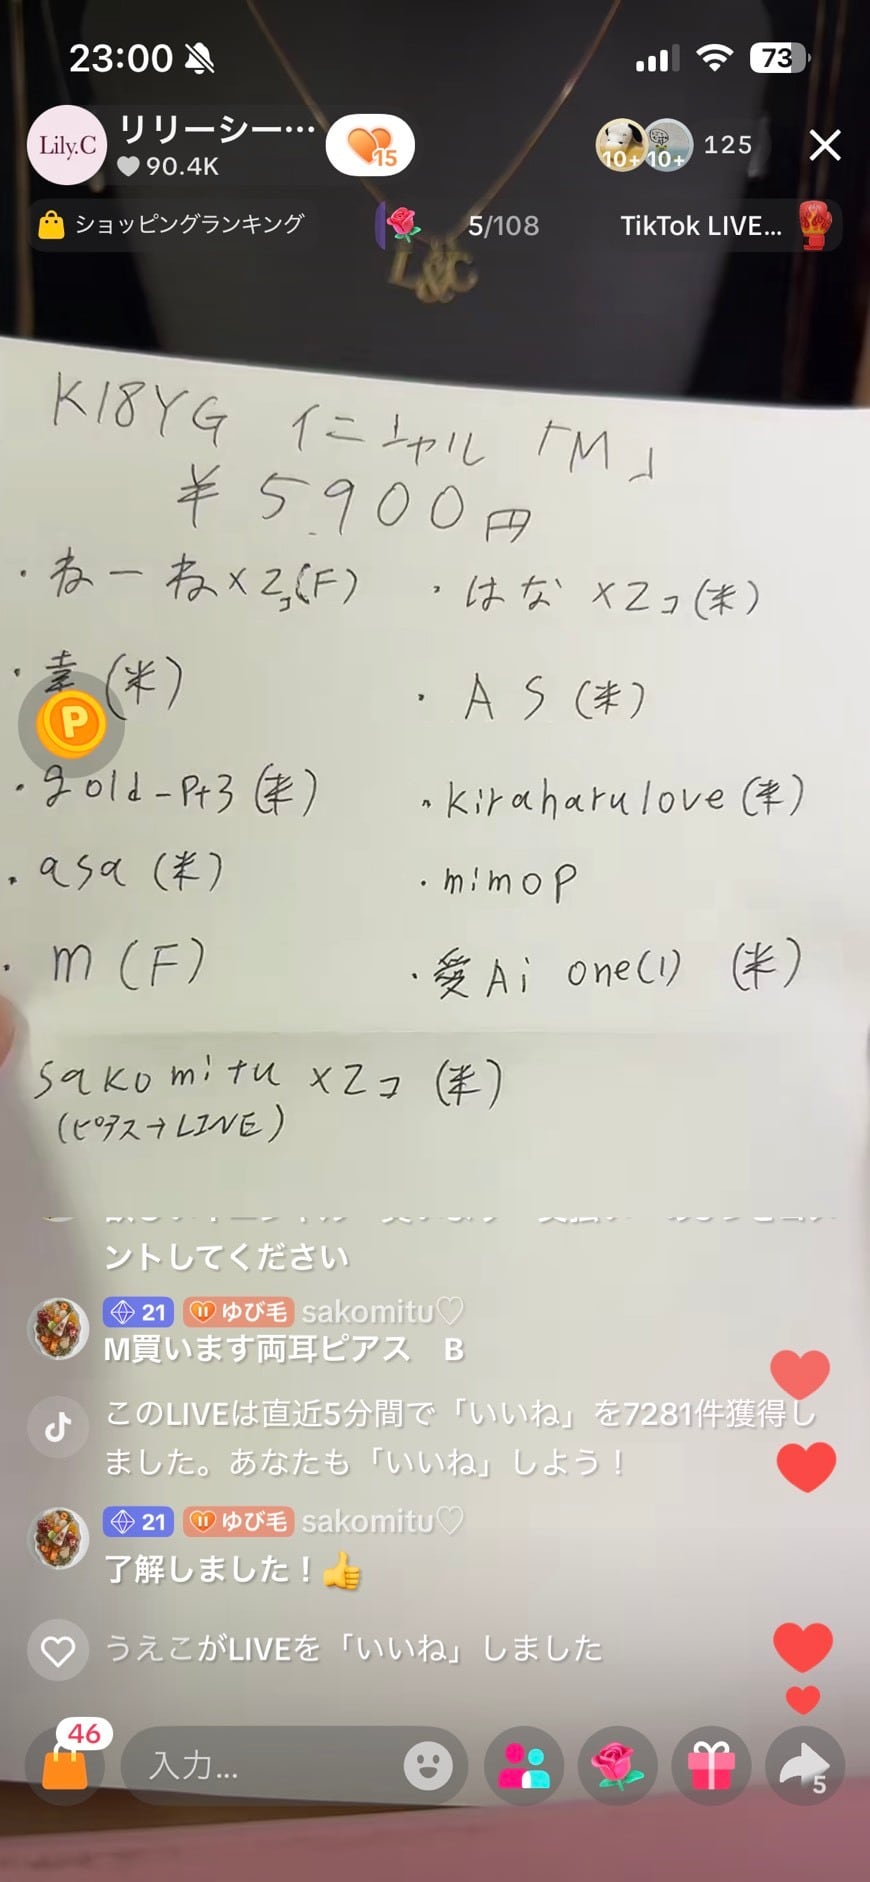 23:00
73
Lily.C
リリーシー…
90.4K
15
10+
10+
125
ショッピングランキング
5/108
TikTok LIVE...
L&C
K18YG イニシャル「M」
¥5,900円
・ねーね×2コ(F)
・はな×2コ(米)
(米)
・AS(米)
P
・gold-Pt3(米)
・kiraharulove(米)
・asa(米)
・mimop
・m(F)
・愛Ai one(1) (米)
sakomitu×2コ(米)
(ピアス→LINE)
ントしてください
21 ゆび毛 sakomitu♡
M買います両耳ピアス B
このLIVEは直近5分間で「いいね」を7281件獲得し
ました。あなたも「いいね」しよう！
21 ゆび毛 sakomitu♡
了解しました！👍
うえこがLIVEを「いいね」しました
46
入力...
5